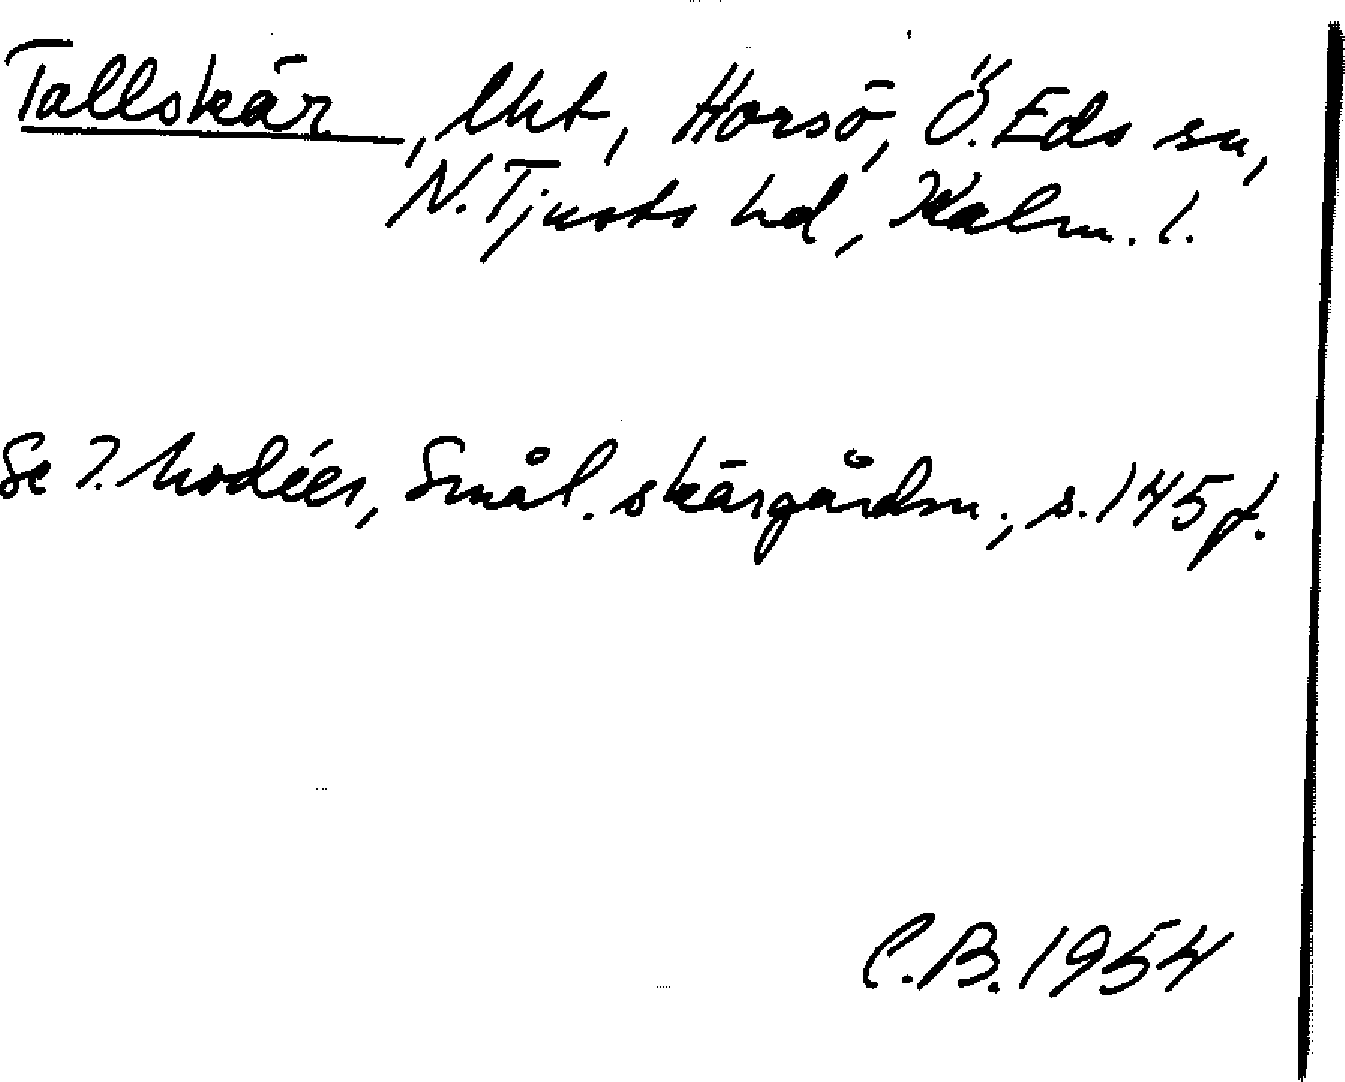 Tallskär, lht, Horsö, Ö. Eds sn,
N. Tjusts hd, Kalm. l.
Se T. Modéer, Smål. skärgårdsn., s. 145 f.
C.B. 1954